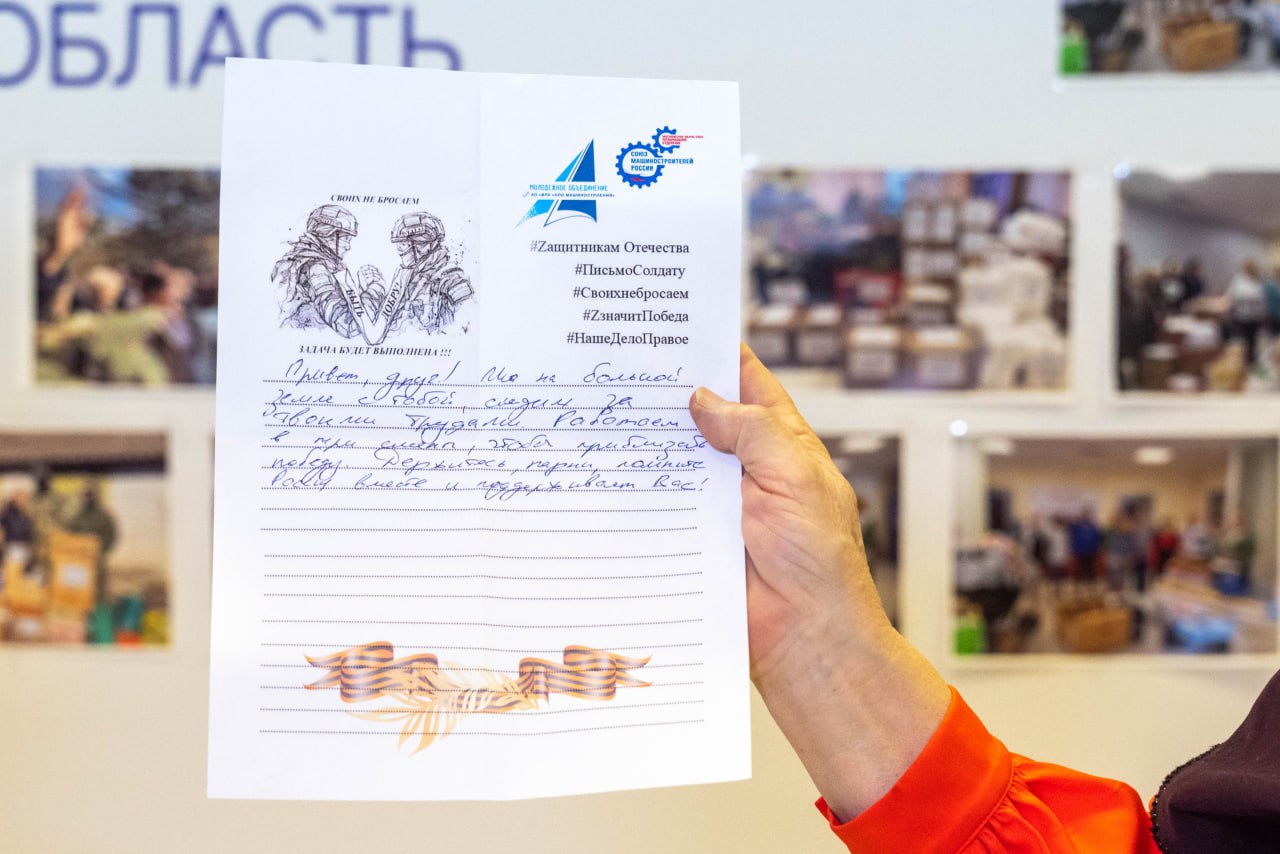 ОБЛАСТЬ
СВОИХ НЕ БРОСАЕМ
БЫТЬ ДОБРУ
ЗАДАЧА БУДЕТ ВЫПОЛНЕНА !!!
МОЛОДЕЖНОЕ ОБЪЕДИНЕНИЕ
СОЮЗ
МАШИНОСТРОИТЕЛЕЙ
РОССИИ
#Zащитникам Отечества
#ПисьмоСолдату
#Своихнебросаем
#ZзначитПобеда
#НашеДелоПравое
Привет, друг! Мы на большой
земле с тобой, следим за
твоими трудами. Работаем
в три смены, чтобы приблизить
победу. Держитесь, парни, помните
вместе и поддерживает Вас!